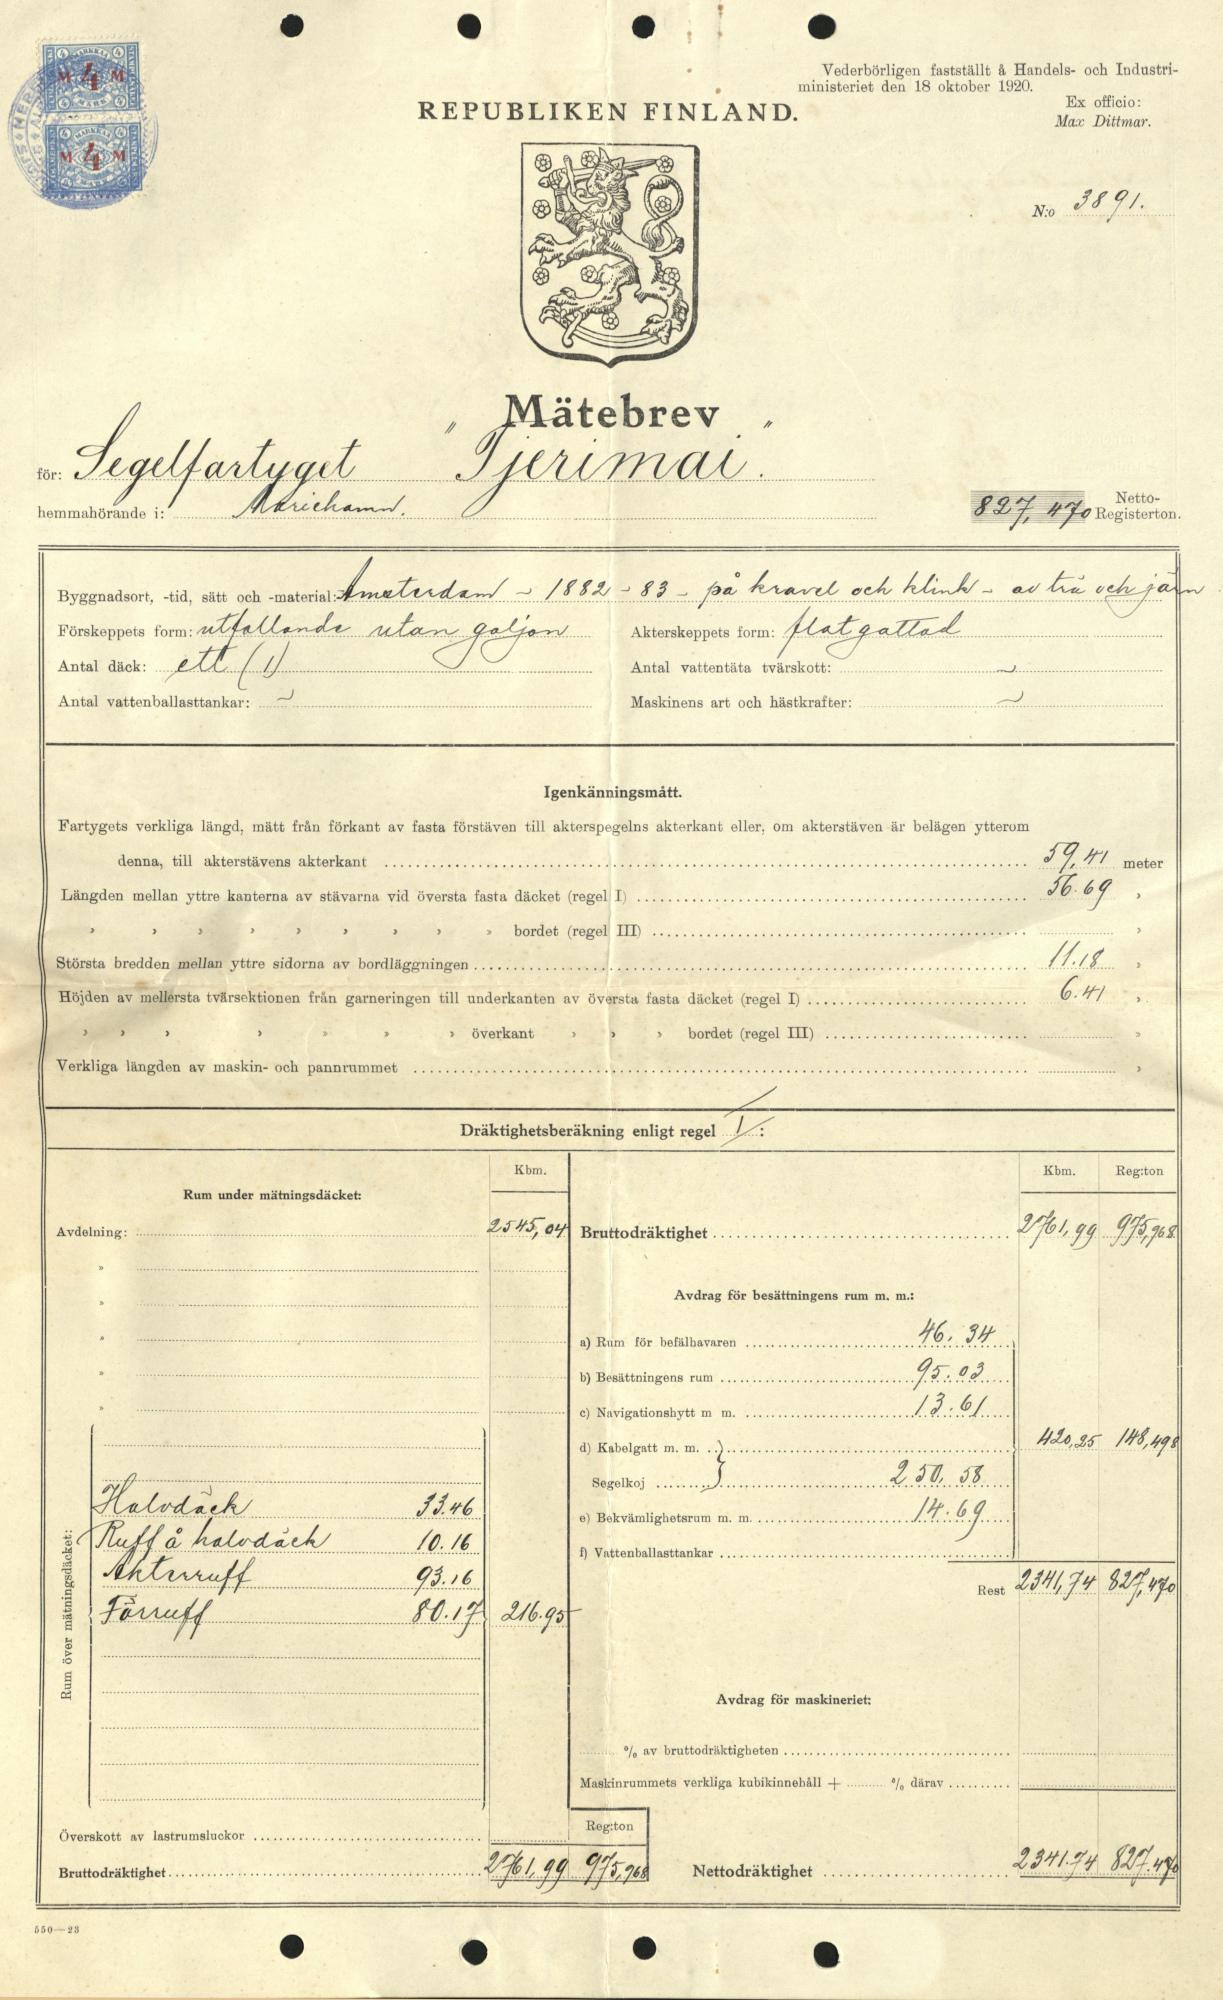 Vederbörligen fastställt å Handels- och Industri-
ministeriet den 18 oktober 1920.
Ex officio:
Max Dittmar.
REPUBLIKEN FINLAND.
MARKKAA
M 4 M
MARK
MARKKAA
M 4 M
MARK
N:o 3891.
Mätebrev
för: Segelfartyget "Tjerimai".
hemmahörande i: Mariehamn.
827,470 Netto-Registerton.
Byggnadsort, -tid, sätt och -material: Amsterdam - 1882 - 83 - på kravel och klink - av trä och järn
Förskeppets form: utfallande utan galjon Akterskeppets form: flatgattad
Antal däck: ett (1) Antal vattentäta tvärskott: ~
Antal vattenballasttankar: ~ Maskinens art och hästkrafter: ~
Igenkänningsmått.
Fartygets verkliga längd, mätt från förkant av fasta förstäven till akterspegelns akterkant eller, om akterstäven är belägen ytterom
denna, till akterstävens akterkant 59,41 meter
Längden mellan yttre kanterna av stävarna vid översta fasta däcket (regel I) 56.69 »
» » » » » » » » » bordet (regel III) »
Största bredden mellan yttre sidorna av bordläggningen 11.18 »
Höjden av mellersta tvärsektionen från garneringen till underkanten av översta fasta däcket (regel I) 6.41 »
» » » » » » » överkant » » » bordet (regel III) »
Verkliga längden av maskin- och pannrummet »
Dräktighetsberäkning enligt regel I:
Kbm.
Rum under mätningsdäcket:
Avdelning: 2545,04
»
»
»
»
»
Rum över mätningsdäcket:
Halvdäck 33.46
Ruff å halvdäck 10.16
Akterruff 93.16
Förruff 80.17 216.95
Överskott av lastrumsluckor
Reg:ton
Bruttodräktighet 2761,99 975,968
Kbm. Reg:ton
Bruttodräktighet 2761,99 975,968
Avdrag för besättningens rum m. m.:
a) Rum för befälhavaren 46.34
b) Besättningens rum 95.03
c) Navigationshytt m m. 13.61
d) Kabelgatt m. m. 420,25 148,498
Segelkoj 250.58
e) Bekvämlighetsrum m. m. 14.69
f) Vattenballasttankar
Rest 2341,74 827,470
Avdrag för maskineriet:
% av bruttodräktigheten
Maskinrummets verkliga kubikinnehåll + % därav
Nettodräktighet 2341.74 827.470
550—23